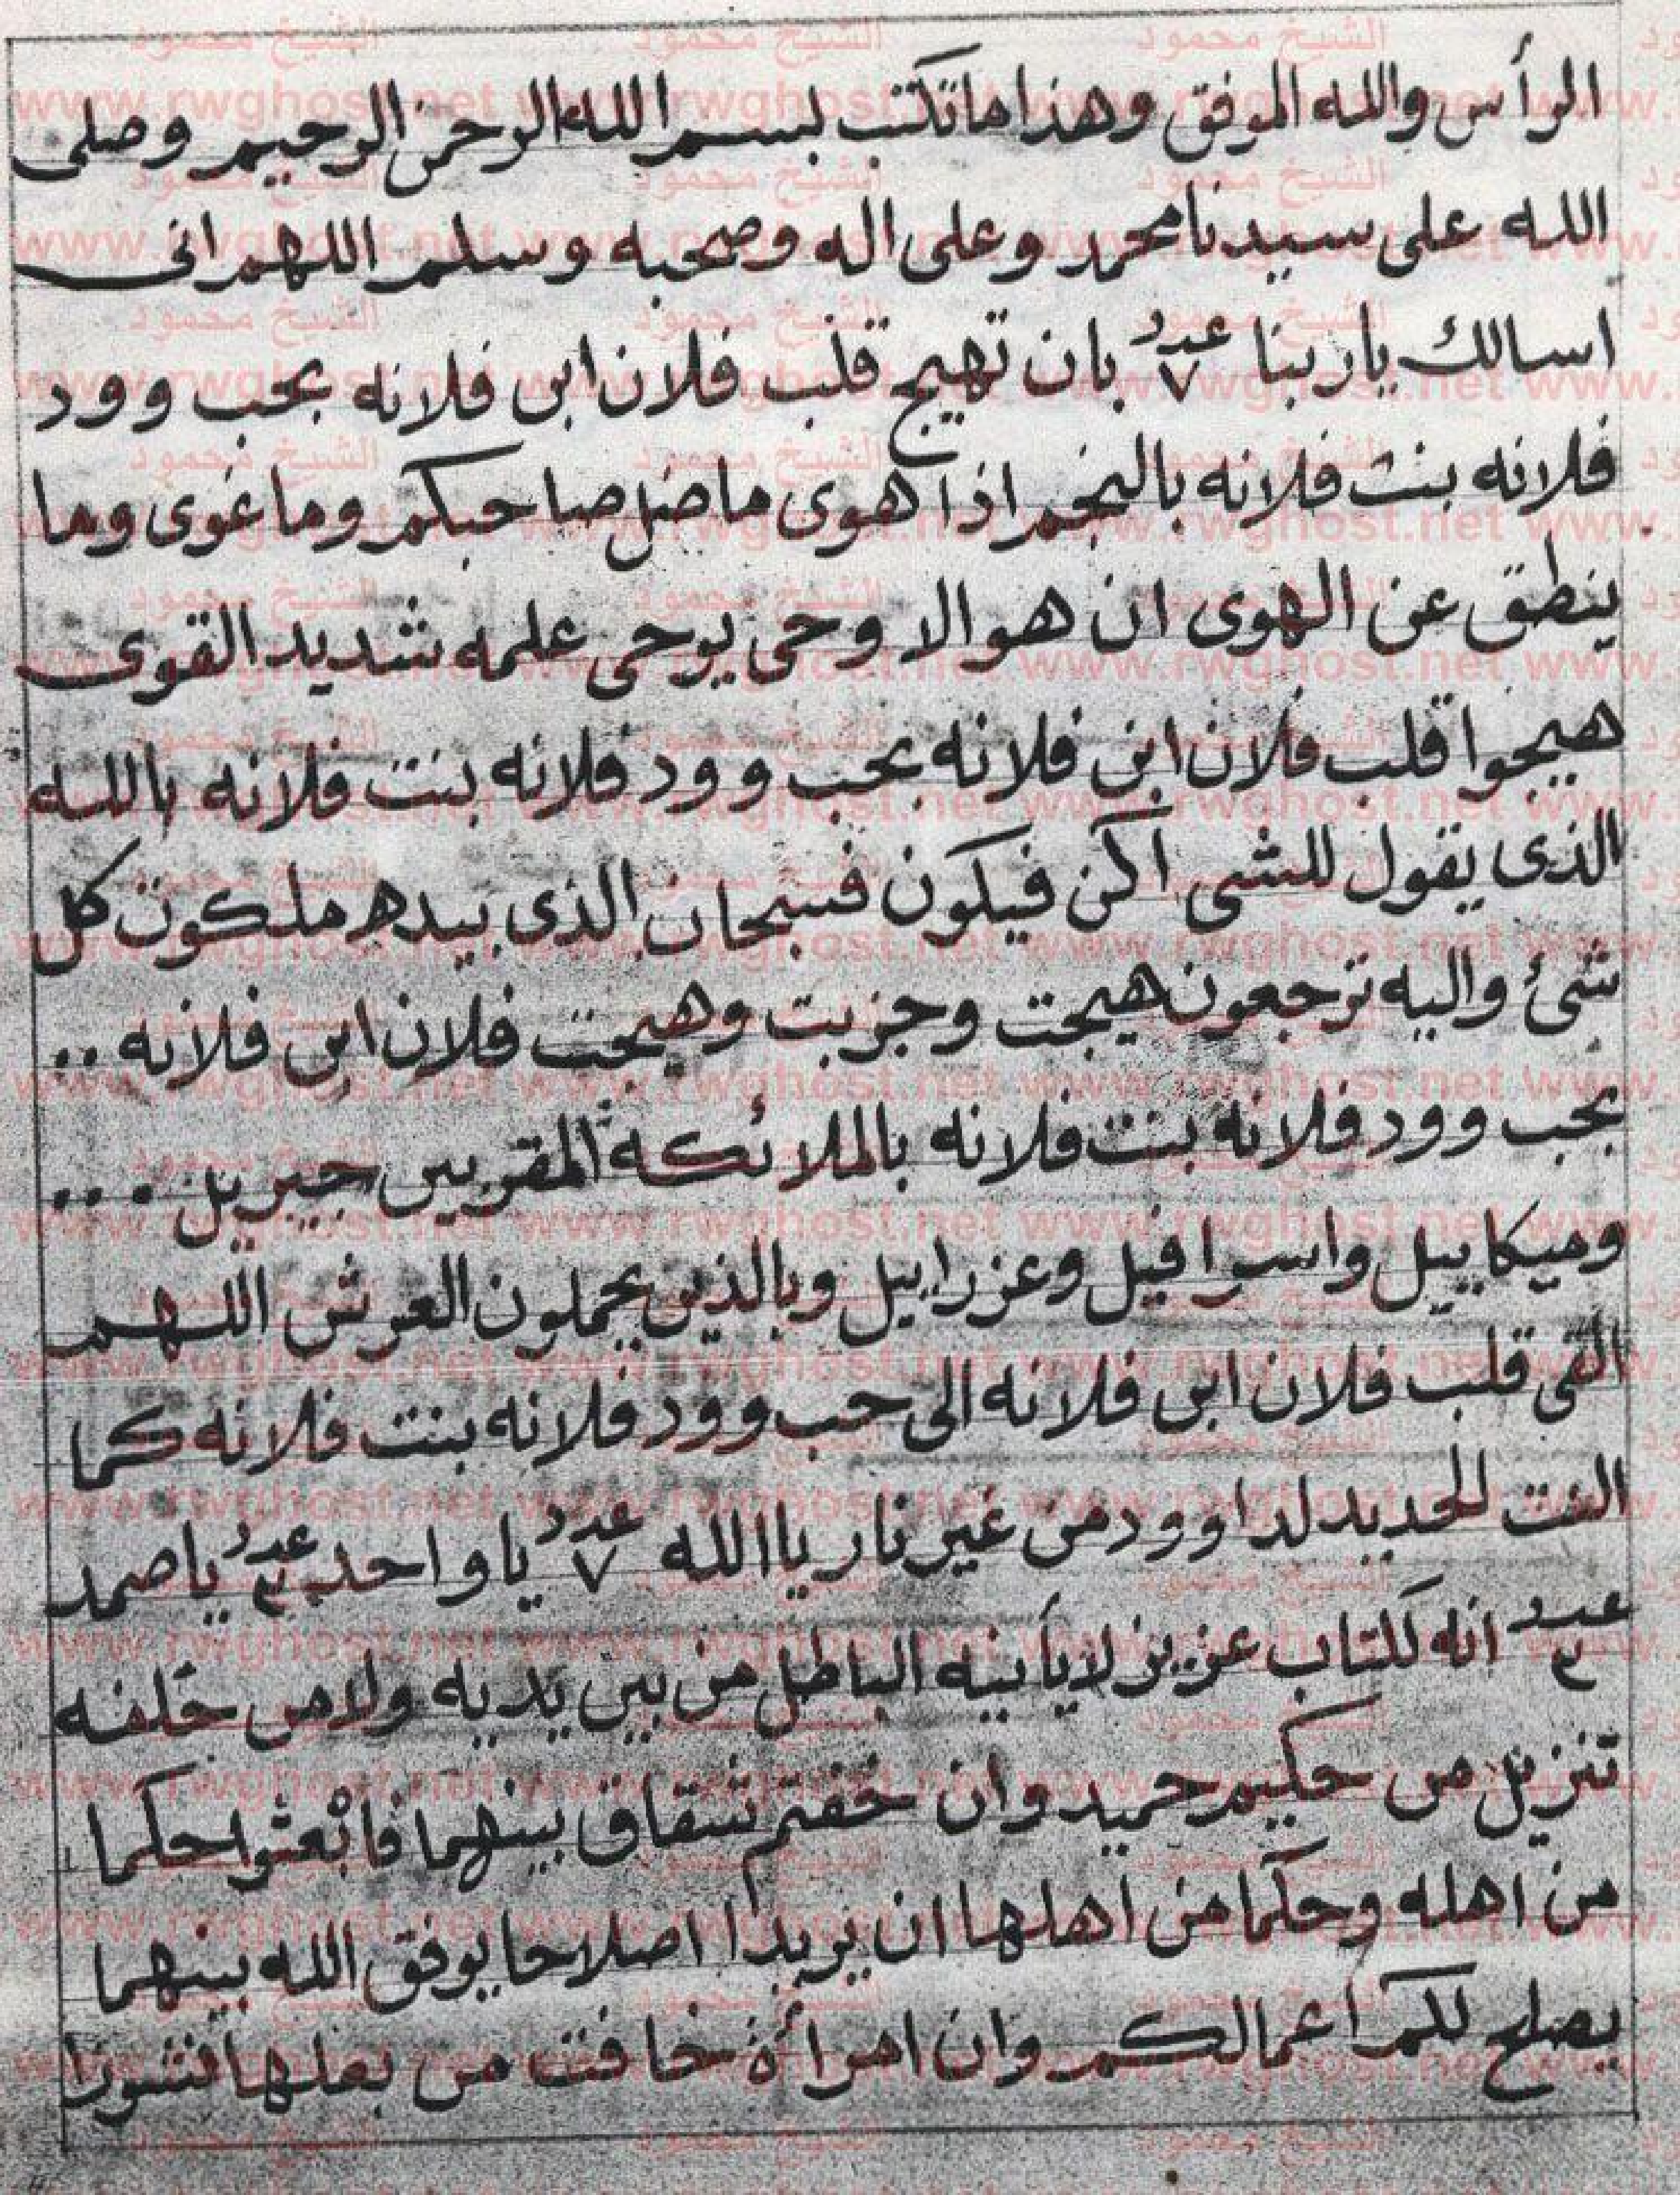 الرأس والله الموفق وهذا ما تكتب بسم الله الرحمن الرحيم وصلى
الله على سيدنا محمد وعلى اله وصحبه وسلم اللهم انى
اسالك ياربنا عدد ٧ بان تهيج قلب فلان ابن فلانه بحب وود
فلانه بنت فلانه بالنجم اذا هوى ما ضل صاحبكم وما غوى وما
ينطق عن الهوى ان هو الا وحى يوحى علمه شديد القوى
هيجوا قلب فلان ابن فلانه بحب وود فلانه بنت فلانه بالله
الذى يقول للشى اكن فيكون فسبحان الذى بيده ملكوت كل
شئ واليه ترجعون هيجت وجزبت وهيجت فلان ابن فلانه ..
بحب وود فلانه بنت فلانه بالملائكه المقربين جبريل ...
وميكاييل واسرافيل وعزراييل وبالذين يحملون العرش اللهم
القى قلب فلان ابن فلانه الى حب وود فلانه بنت فلانه كما
النت للحديد لداوود من غير نار ياالله عدد ٧ ياواحد عدد ٣ ياصمد
عدد ٣ انه لكتاب عزيز لا يأتيه الباطل من بين يديه ولا من خلفه
تنزيل من حكيم حميد وان خفتم شقاق بينهما فابعثوا حكما
من اهله وحكما من اهلها ان يريدا اصلاحا يوفق الله بينهما
يصلح لكم اعمالكم وان امرأة خافت من بعلها نشوزا
الشيخ محمود
www.rwghost.net